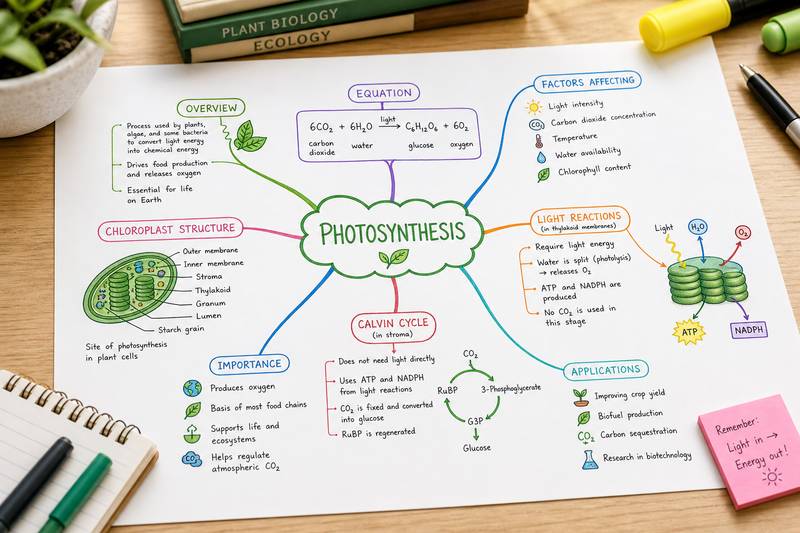 PLANT BIOLOGY
ECOLOGY
OVERVIEW
Process used by plants,
algae, and some bacteria
to convert light energy
into chemical energy
Drives food production
and releases oxygen
Essential for life
on Earth
EQUATION
6CO₂ + 6H₂O light → C₆H₁₂O₆ + 6O₂
carbon dioxide water glucose oxygen
FACTORS AFFECTING
Light intensity
CO₂ Carbon dioxide concentration
Temperature
Water availability
Chlorophyll content
PHOTOSYNTHESIS
CHLOROPLAST STRUCTURE
Outer membrane
Inner membrane
Stroma
Thylakoid
Granum
Lumen
Starch grain
Site of photosynthesis
in plant cells
LIGHT REACTIONS
(in thylakoid membranes)
Require light energy
Water is split (photolysis)
→ releases O₂
ATP and NADPH are
produced
No CO₂ is used in
this stage
Light
H₂O
O₂
ATP
NADPH
IMPORTANCE
Produces oxygen
Basis of most food chains
Supports life and
ecosystems
CO₂ Helps regulate
atmospheric CO₂
CALVIN CYCLE
(in stroma)
Does not need light directly
Uses ATP and NADPH
from light reactions
CO₂ is fixed and converted
into glucose
RuBP is regenerated
CO₂
RuBP
3-Phosphoglycerate
G3P
Glucose
APPLICATIONS
Improving crop yield
Biofuel production
CO₂ Carbon sequestration
Research in biotechnology
Remember:
Light in →
Energy out!